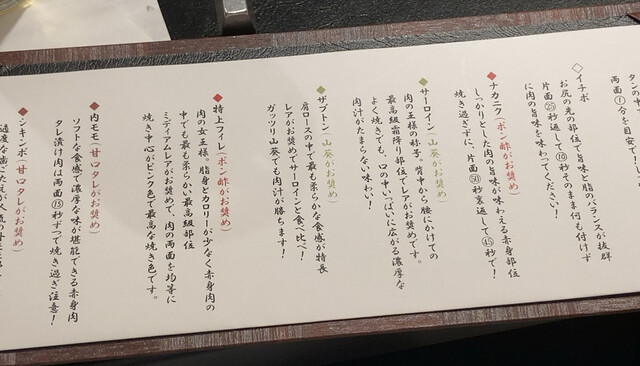 タンの中
両面①分を目安で
◇イチボ
お尻の先の部位で旨味と脂のバランスが抜群
片面㉕秒返して⑩秒そのまま何も付けず
に肉の旨味を味わってください！
◆ナカニク（ポン酢がお奨め）
しっかりとした肉の旨味が味わえる赤身部位
焼き過ぎずに、片面㊿秒裏返して㊺秒で！
◆サーロイン（山葵がお奨め）
肉の王様の称号。背中から腰にかけての
最高級霜降り部位でレアがお奨めです。
よく焼きでも、口の中いっぱいに広がる濃厚な
肉汁がたまらない味わい！
◆ザブトン（山葵がお奨め）
肩ロースの中で最も柔らかな食感が特長
レアがお奨めでサーロインと食べ比べ！
ガッツリ山葵でも肉汁が勝ちます！
◆特上フィレ（ポン酢がお奨め）
肉の女王様。脂身とカロリーが少なく赤身肉の
中でも最も柔らかな最高級部位
ミディアムレアがお奨めで、肉の両面を均等に
焼き中心がピンク色で最高な焼き色です。
◆内モモ（甘口タレがお奨め）
ソフトな食感で濃厚な味が堪能できる赤身肉
タレ漬け肉は両面⑮秒ずつで焼き過ぎ注意！
◆シキンボ（甘口タレがお奨め）
適度な歯ごたえが人気の